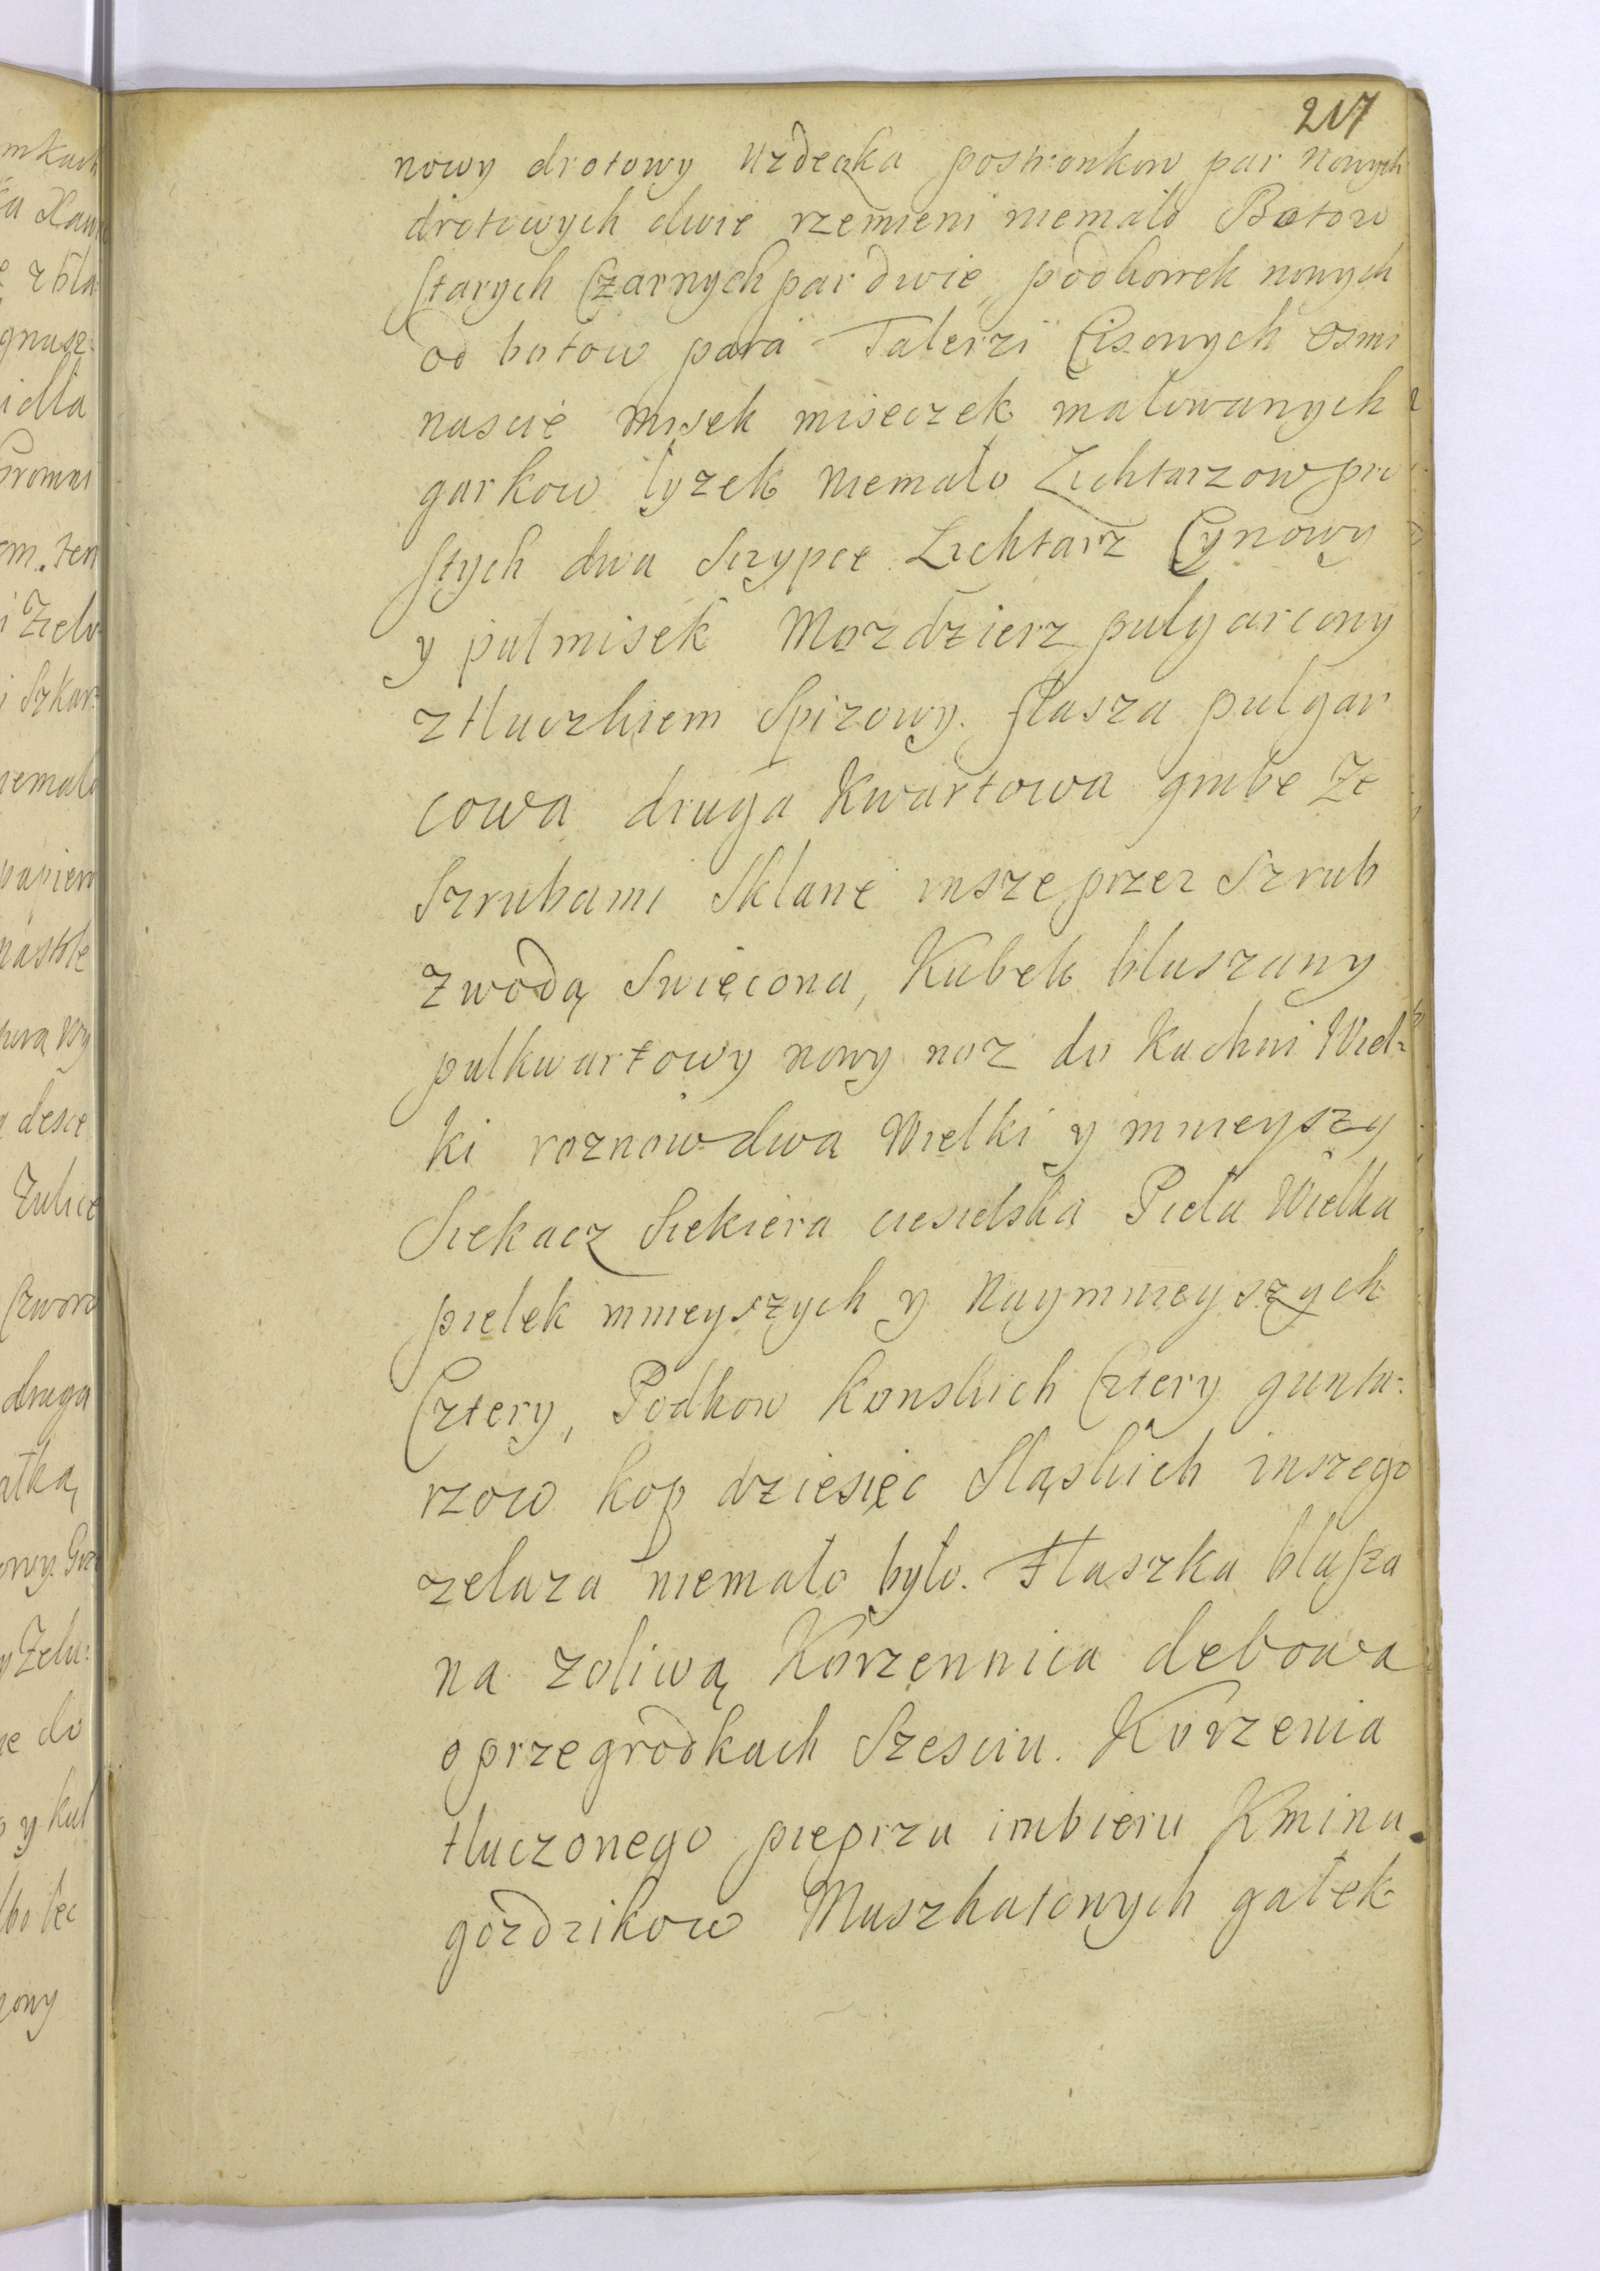 217
nowy drotowy uzdeczka postronkow par nowych
drotowych dwie rzemieni niemało Botow
starych Czarnych par dwie, podkowek nowych
od botow para Talerzi Cisowych osmi
nascie misek miseczek malowanych
garkow łyzek niemało Lichtarzow pro
stych dwa Sczypce Lichtarz Cynowy
y pulmisek Mozdzierz pulgarcowy
ztłuczkiem Spizowy. flasza pulgar
cowa druga kwartowa grube ze
Szrubami Sklane insze przez Szrub
z wodą Swięcona, Kubek blaszany
pulkwartowy nowy noz do kuchni Wiel-
ki roznow dwa Wielki y mnieyszy
Siekacz Siekiera ciesielska Pieła Wielka
piełek mnieyszych y Naymnieyszych
Cztery, Podkow konskich Cztery gunta-
rzow kop dziesięc Sląskich inszego
zelaza niemało było. Flaszka blasza
na zoliwą Korzennica debowa
o przegrodkach Szesciu. Korzenia
tłuczonego pieprzu imbieru Kminu
gozdzikow Muszkatowych gałek